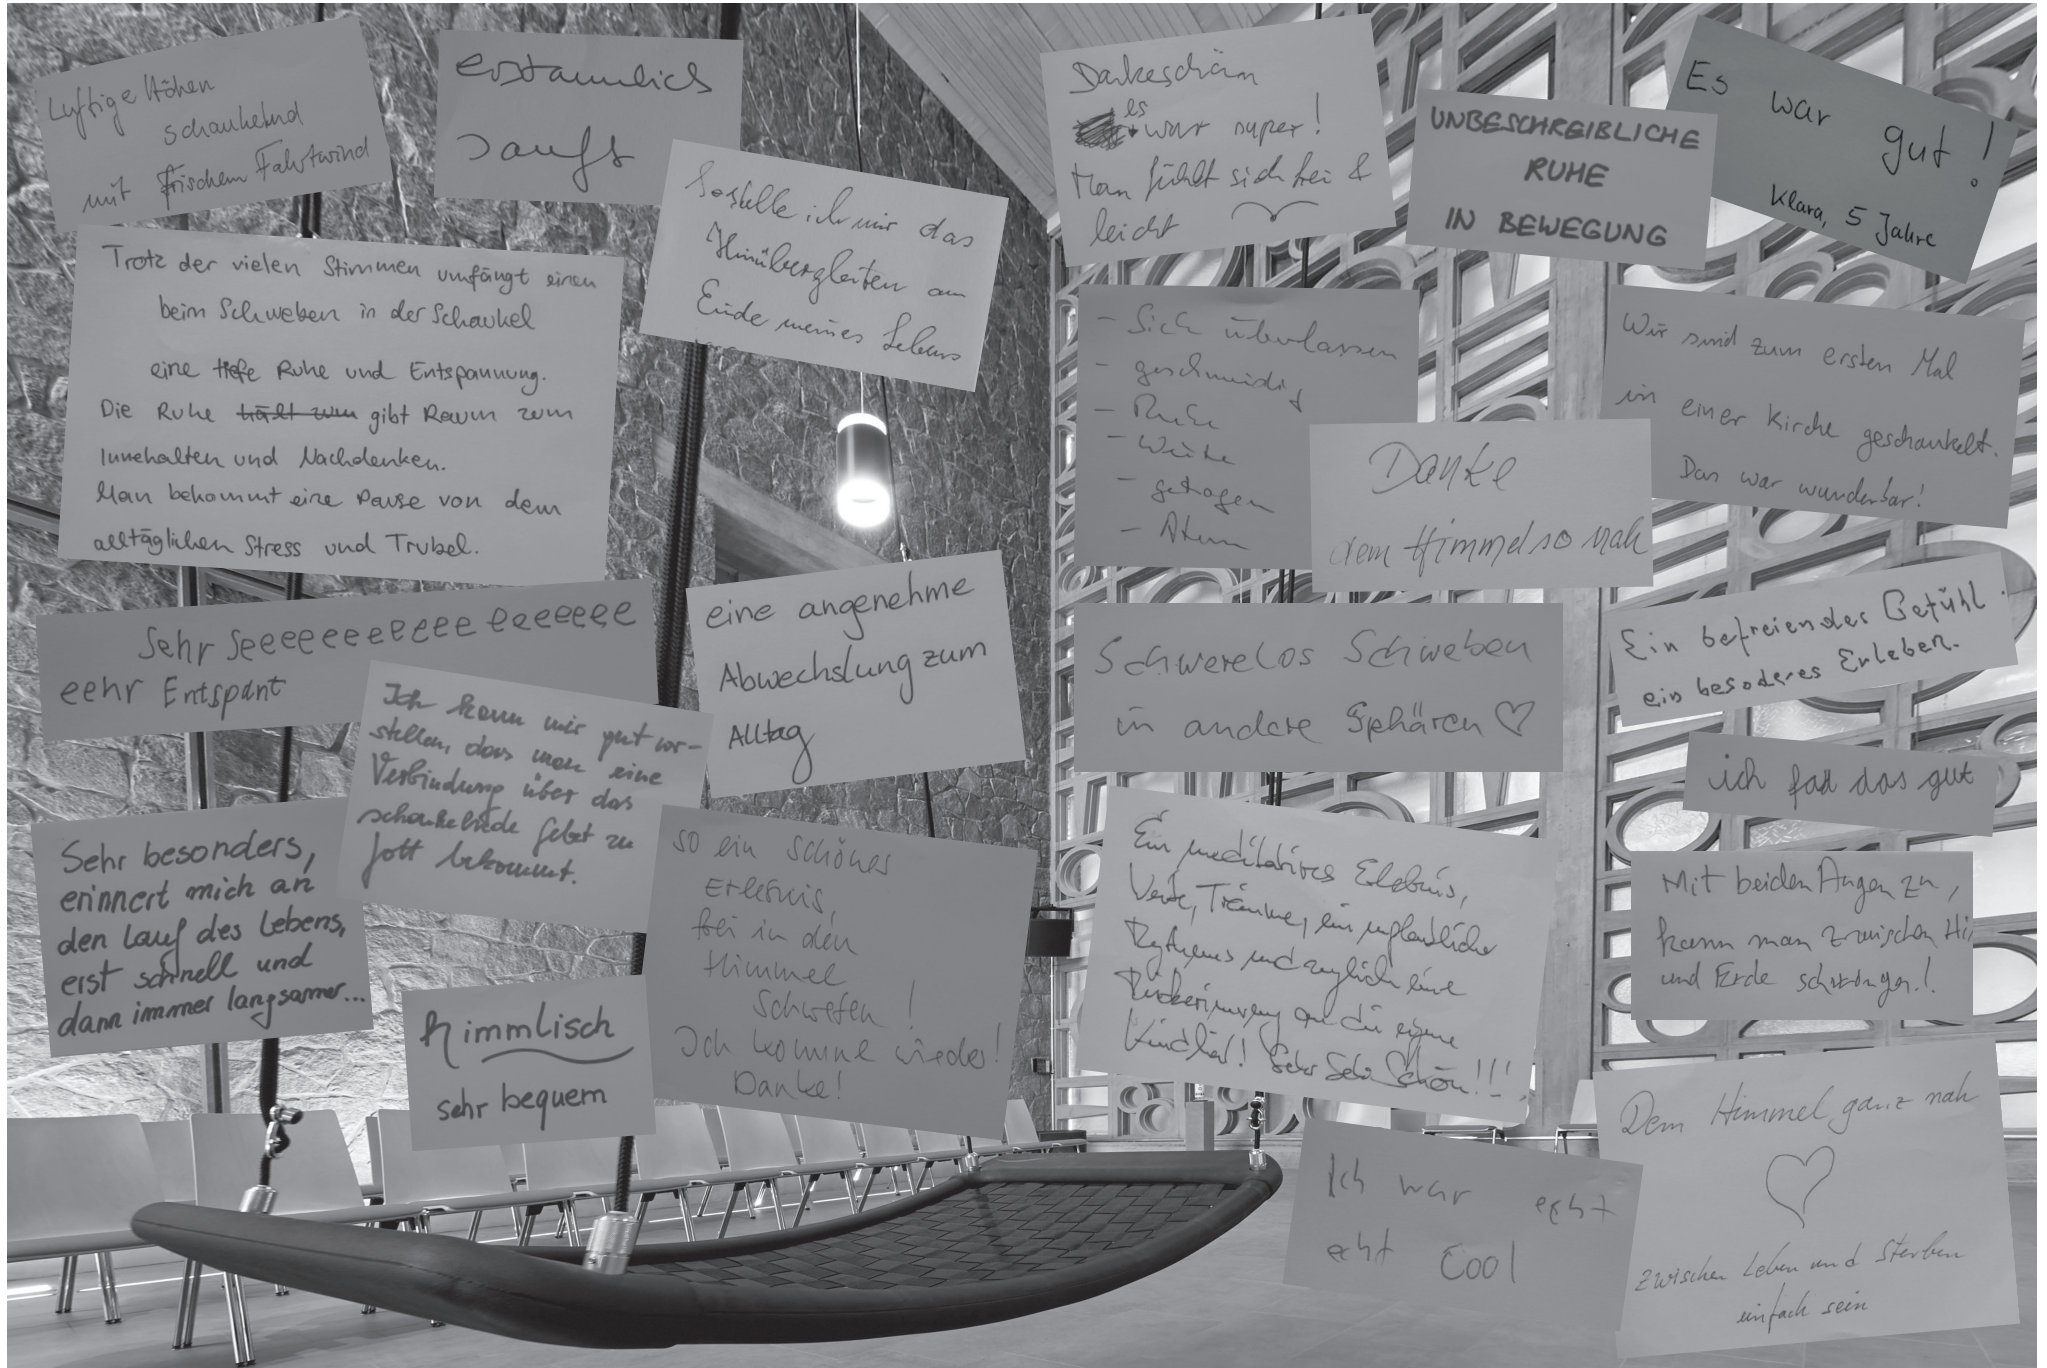 Luftige Höhen
schaukelnd
mit frischem Fahrtwind
erstaunlich
sanft
So stelle ich mir das
Hinübergleiten am
Ende meines Lebens
Trotz der vielen Stimmen umfängt einen
beim Schweben in der Schaukel
eine tiefe Ruhe und Entspannung.
Die Ruhe hält zum gibt Raum zum
Innehalten und Nachdenken.
Man bekommt eine Pause von dem
alltäglichen Stress und Trubel.
Sehr Seeeeeeeeeeee eeeeeee
eehr Entspant
eine angenehme
Abwechslung zum
Alltag
Ich kann mir gut vor-
stellen, dass man eine
Verbindung über das
schaukelnde Gebet zu
Gott bekommt.
Sehr besonders,
erinnert mich an
den Lauf des Lebens,
erst schnell und
dann immer langsamer...
himmlisch
sehr bequem
so ein schönes
Erlebnis,
frei in den
Himmel
schweben!
Ich komme wieder!
Danke!
Dankeschöm
es
war super!
Man fühlt sich frei &
leicht
UNBESCHREIBLICHE
RUHE
IN BEWEGUNG
Es war gut!
Klara, 5 Jahre
- Sich überlassen
- geschmeidig
- Ruhe
- Weite
- getragen
- Atem
Wir sind zum ersten Mal
in einer Kirche geschaukelt.
Das war wunderbar!
Danke
dem Himmel so nah
Schwerelos Schweben
in andere Sphären ♡
Ein befreiendes Gefühl.
ein besonderes Erleben.
ich fad das gut
Ein meditatives Erlebnis,
Weite, Träume, ein unglaublicher
Rythmus und zugleich eine
Rückerinnerung an die eigene
Kindheit! Sehr Sehr Schön!!!
Mit beiden Augen zu,
kann man zwischen Hi
und Erde schwingen!
Ich war echt
echt Cool
Dem Himmel ganz nah
♡
zwischen Leben und Sterben
einfach sein